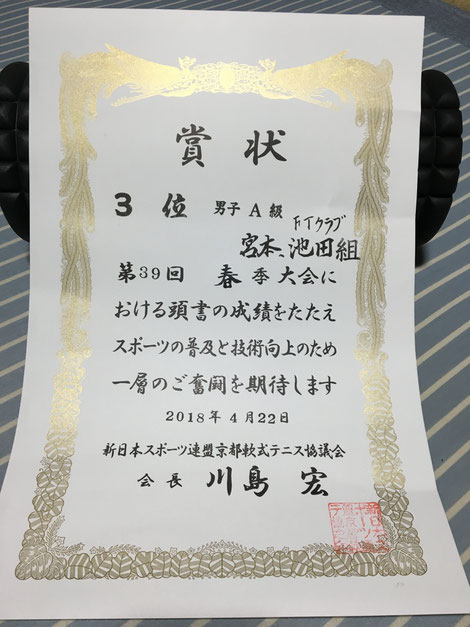 賞状
3位 男子 A級
FTクラブ
宮本、池田組
第39回 春季大会に
おける頭書の成績をたたえ
スポーツの普及と技術向上のため
一層のご奮闘を期待します
2018年4月22日
新日本スポーツ連盟京都軟式テニス協議会
会長 川島 宏